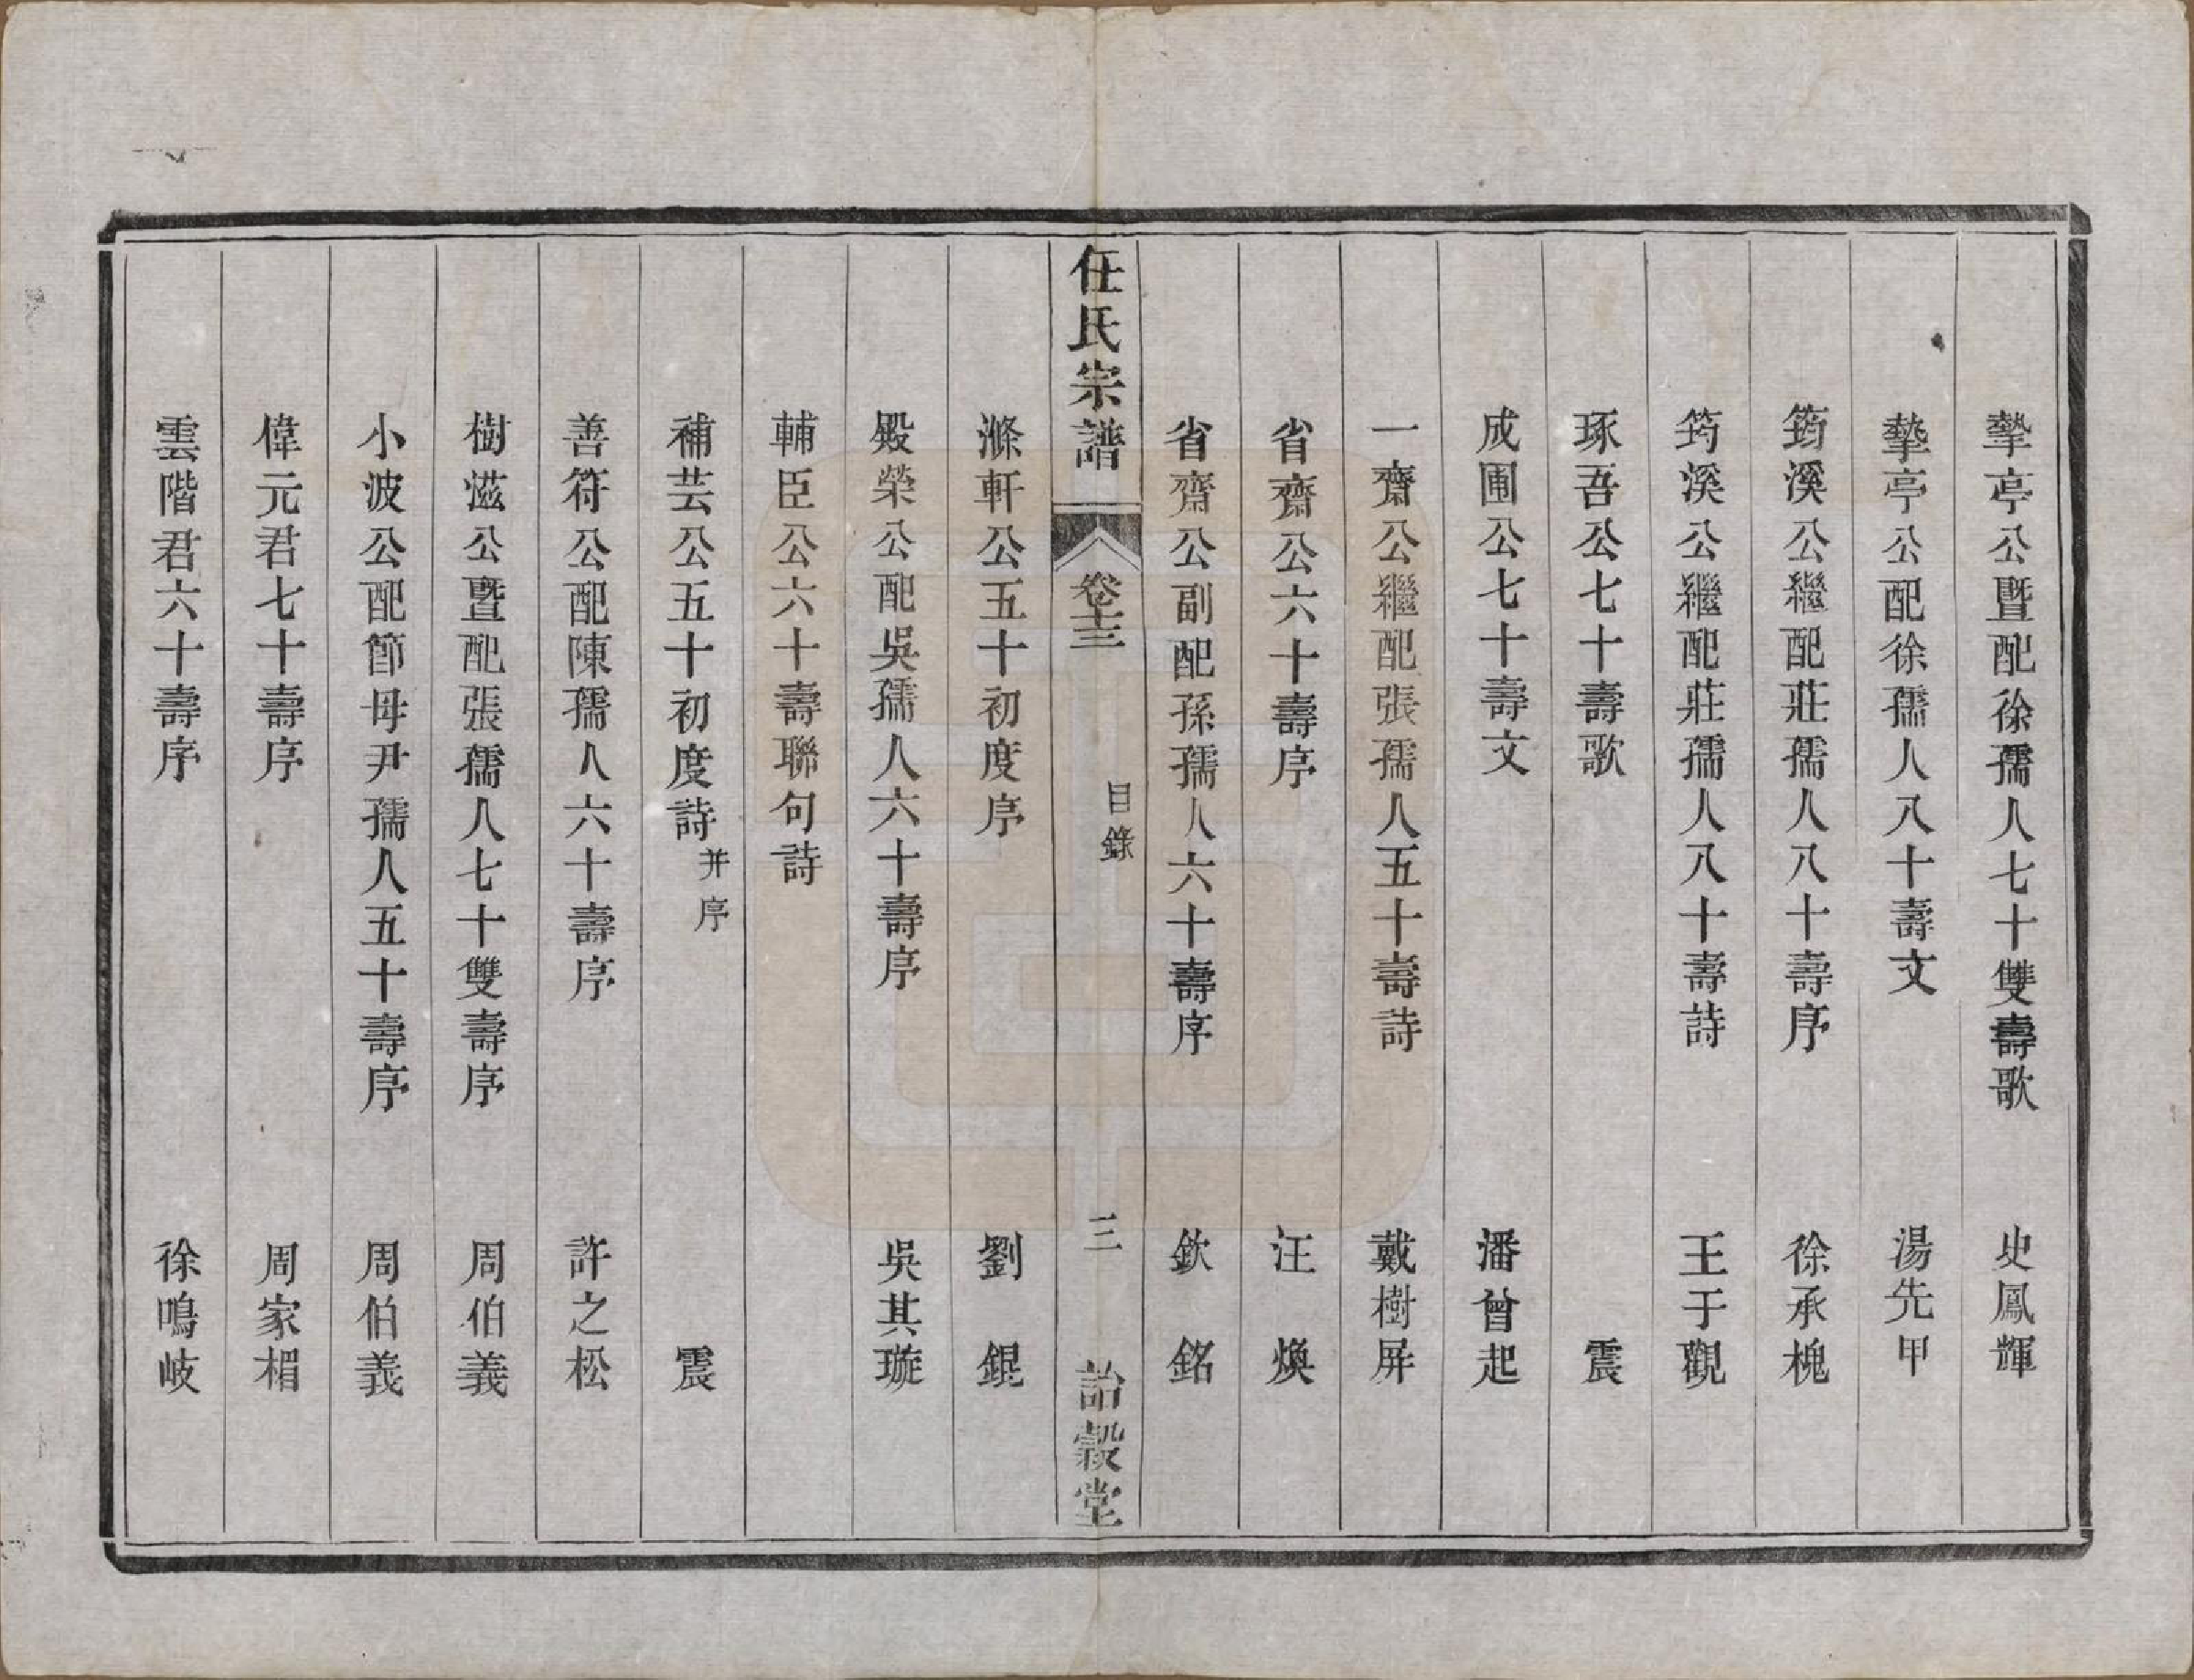 摯亭公暨配徐孺人七十雙壽歌　史鳳輝
摯亭公配徐孺人八十壽文　湯先甲
筠溪公繼配莊孺人八十壽序　徐承槐
筠溪公繼配莊孺人八十壽詩　王于觀
琢吾公七十壽歌　震
成圃公七十壽文　潘曾起
一齋公繼配張孺人五十壽詩　戴樹屏
省齋公六十壽序　汪煥
省齋公副配孫孺人六十壽序　欽銘
任氏宗譜　卷十三　目錄　三　詒穀堂
滌軒公五十初度序　劉錕
殿榮公配吳孺人六十壽序　吳其璇
輔臣公六十壽聯句詩
補芸公五十初度詩并序　震
善符公配陳孺人六十壽序　許之松
樹滋公暨配張孺人七十雙壽序　周伯義
小波公配節母尹孺人五十壽序　周伯義
偉元君七十壽序　周家楣
雲階君六十壽序　徐鳴岐